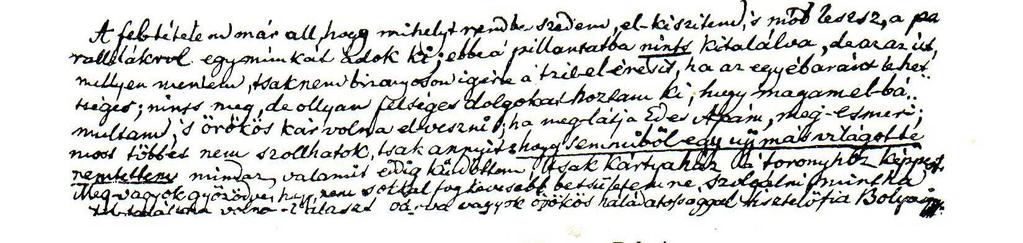 A feltételem már áll, hogy mihelyt rendbe szedem, el-készitem, 's mód lesz, a pa
rallelákrol egy munkát adok ki; ebbe a pillantatba nints kitalálva, de az az út,
mellyen mentem, tsaknem bizanyoson igérte a tzél el-érésit, ha az egyébaránt lehet
tséges; nints meg, de ollyan felséges dolgokat hoztam ki, hogy magam el-bá..
multam, 's örökös kár volna el-veszni; ha meg-látja Édes Apám, meg-esmeri;
most többet nem szollhatok, tsak annyit: hogy semmiből egy ujj más világot te
remtettem; mindaz, valamit eddig küldöttem, tsak kártyaház a' toronyhoz képpest.
Meg-vagyok győződve, hogy nem sokkal fog kevesebb betsületemre szolgálni, mintha
fel-találtam volna vagyok örökös háládatossággal tisztelő fia Bolyai